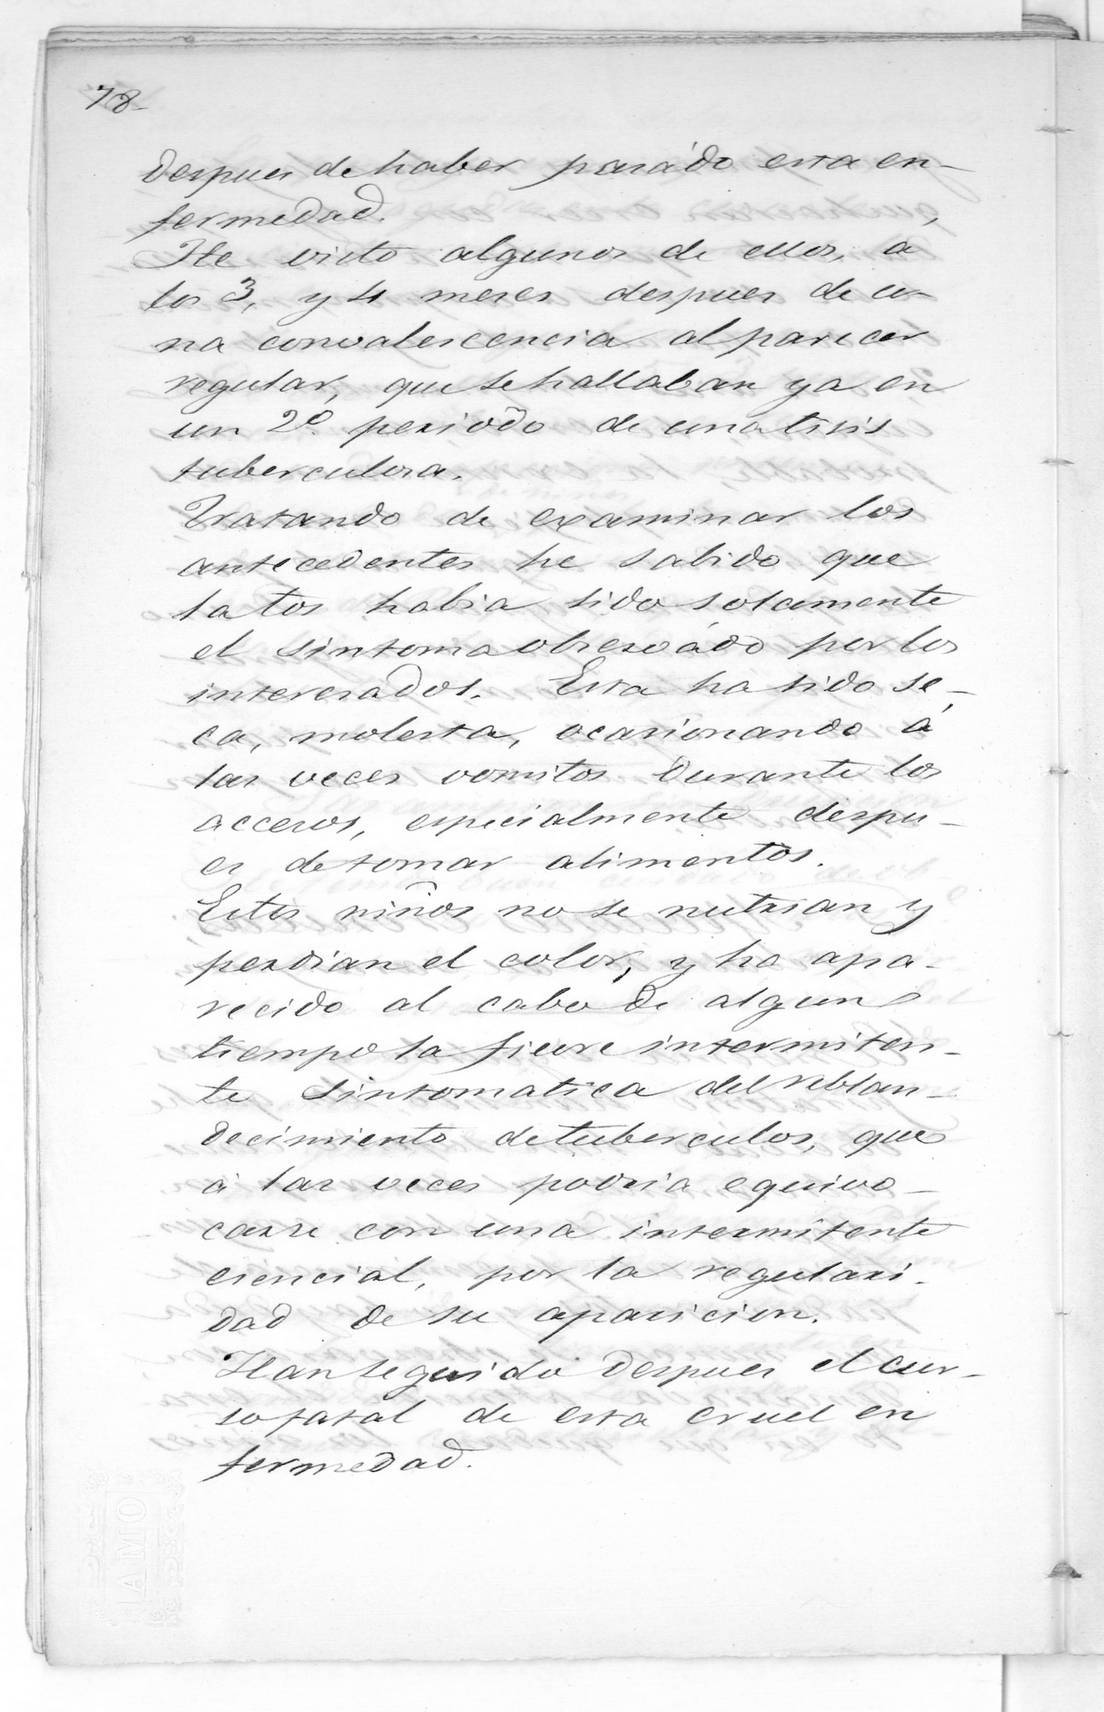 78-
despues de haber pasádo esta en-
fermedad.
He visto algunos de ellos, á
los 3, y 4 meses despues de u-
na convalescencia al parecer
regular, que se hallaban ya en
un 2º periodo de una tisis
tuberculosa.
Tratando de examinar los
antecedentes he sabido que
la tos habia sido solamente
el sintoma obserádo por los
interesados. Esta ha sido se-
ca, molesta, ocasionando á
las veces vomitos durante los
accesos, especialmente despu-
es de tomar alimentos.
Estos niños no se nutrian y
perdian el color, y ha apa-
recido al cabo de algun
tiempo la fievre intermiten-
te sintomatica del reblan-
decimiento de tuberculos, que
á las veces podria equivo-
carse con una intermitente
esencial, por la regulari-
dad de su aparicion.
Han seguido despues el cur-
so fatal de esta cruel en
fermedad.
IAMO